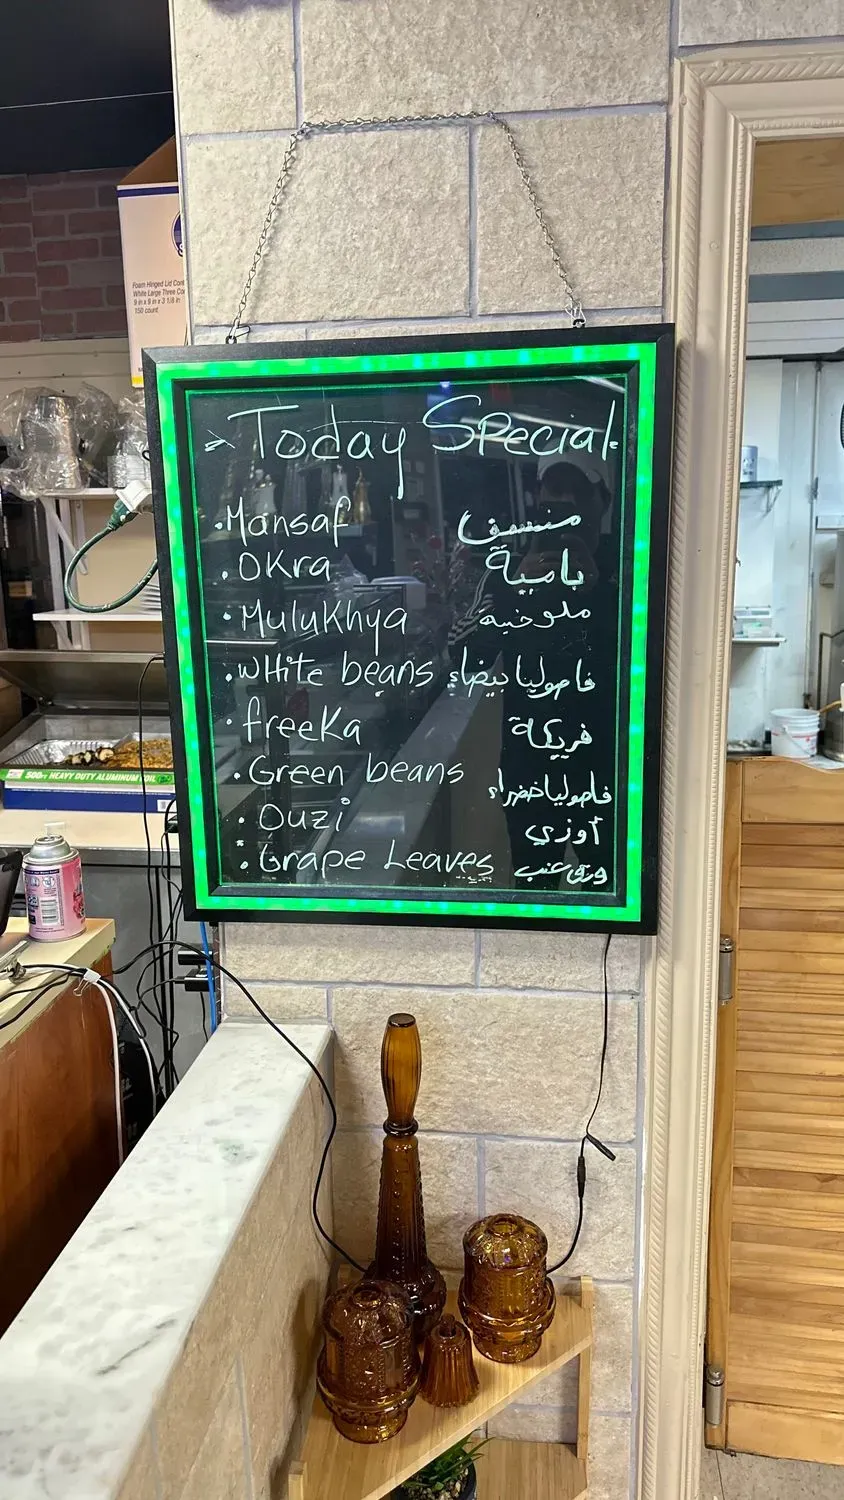 Foam Hinged Lid Con
White Large Three Co
9 in x 9 in x 3 1/8 in
150 count
Today Special
.Mansaf منسف
.OKra بامية
.MuluKhya ملوخية
.wHite beans فاصوليا بيضاء
.freeKa فريكة
.Green beans فاصوليا خضراء
.Ouzi أوزي
.Grape Leaves ورق عنب
500FT HEAVY DUTY ALUMINUM FOIL